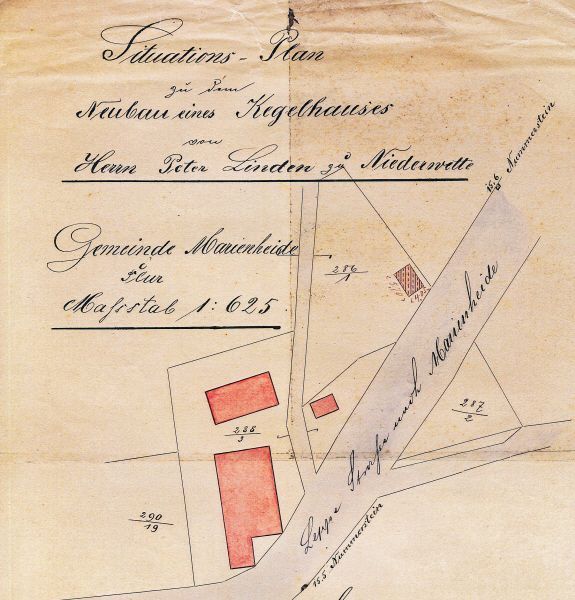 Situations-Plan
zu dem
Neubau eines Kegelhauses
von
Herrn Peter Linden zu Niederwette
Gemeinde Marienheide
Flur
Maßstab 1:625
15.6 Nummerstein
286/1
287/2
288/3
290/19
Leppe Straße nach Marienheide
15.5 Nummerstein